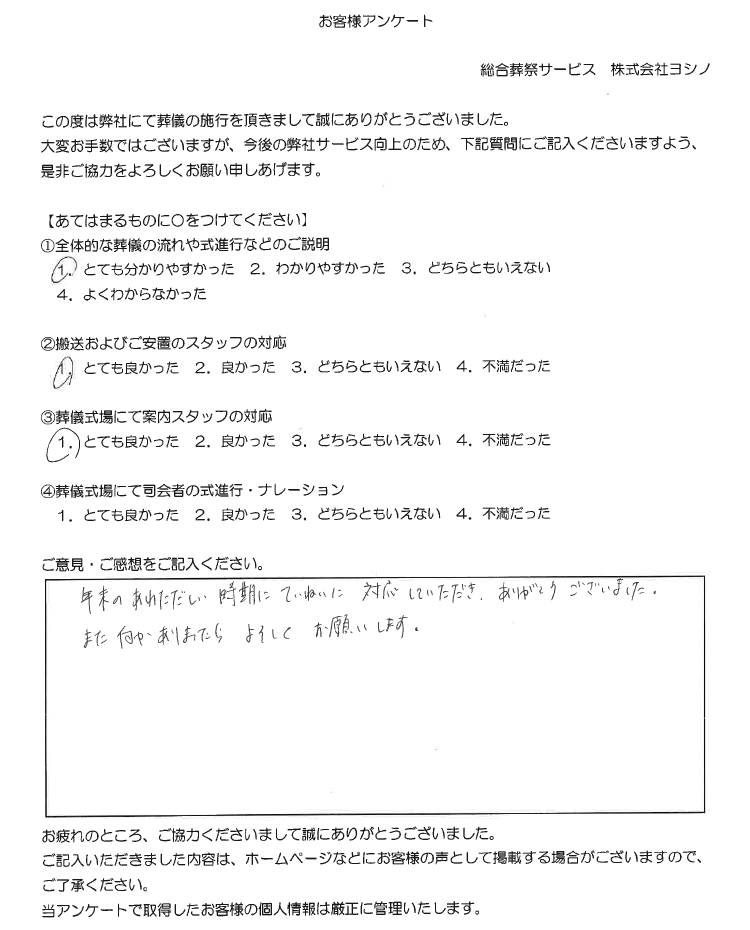 お客様アンケート
総合葬祭サービス 株式会社ヨシノ
この度は弊社にて葬儀の施行を頂きまして誠にありがとうございました。
大変お手数ではございますが、今後の弊社サービス向上のため、下記質問にご記入くださいますよう、
是非ご協力をよろしくお願い申しあげます。
【あてはまるものに〇をつけてください】
①全体的な葬儀の流れや式進行などのご説明
1. とても分かりやすかった 2. わかりやすかった 3. どちらともいえない
4. よくわからなかった
②搬送およびご安置のスタッフの対応
1. とても良かった 2. 良かった 3. どちらともいえない 4. 不満だった
③葬儀式場にて案内スタッフの対応
1. とても良かった 2. 良かった 3. どちらともいえない 4. 不満だった
④葬儀式場にて司会者の式進行・ナレーション
1. とても良かった 2. 良かった 3. どちらともいえない 4. 不満だった
ご意見・ご感想をご記入ください。
年末のあわただしい時期にていねいに対応していただき、ありがとうございました。
また何かありましたらよろしくお願いします。
お疲れのところ、ご協力くださいまして誠にありがとうございました。
ご記入いただきました内容は、ホームページなどにお客様の声として掲載する場合がございますので、
ご了承ください。
当アンケートで取得したお客様の個人情報は厳正に管理いたします。